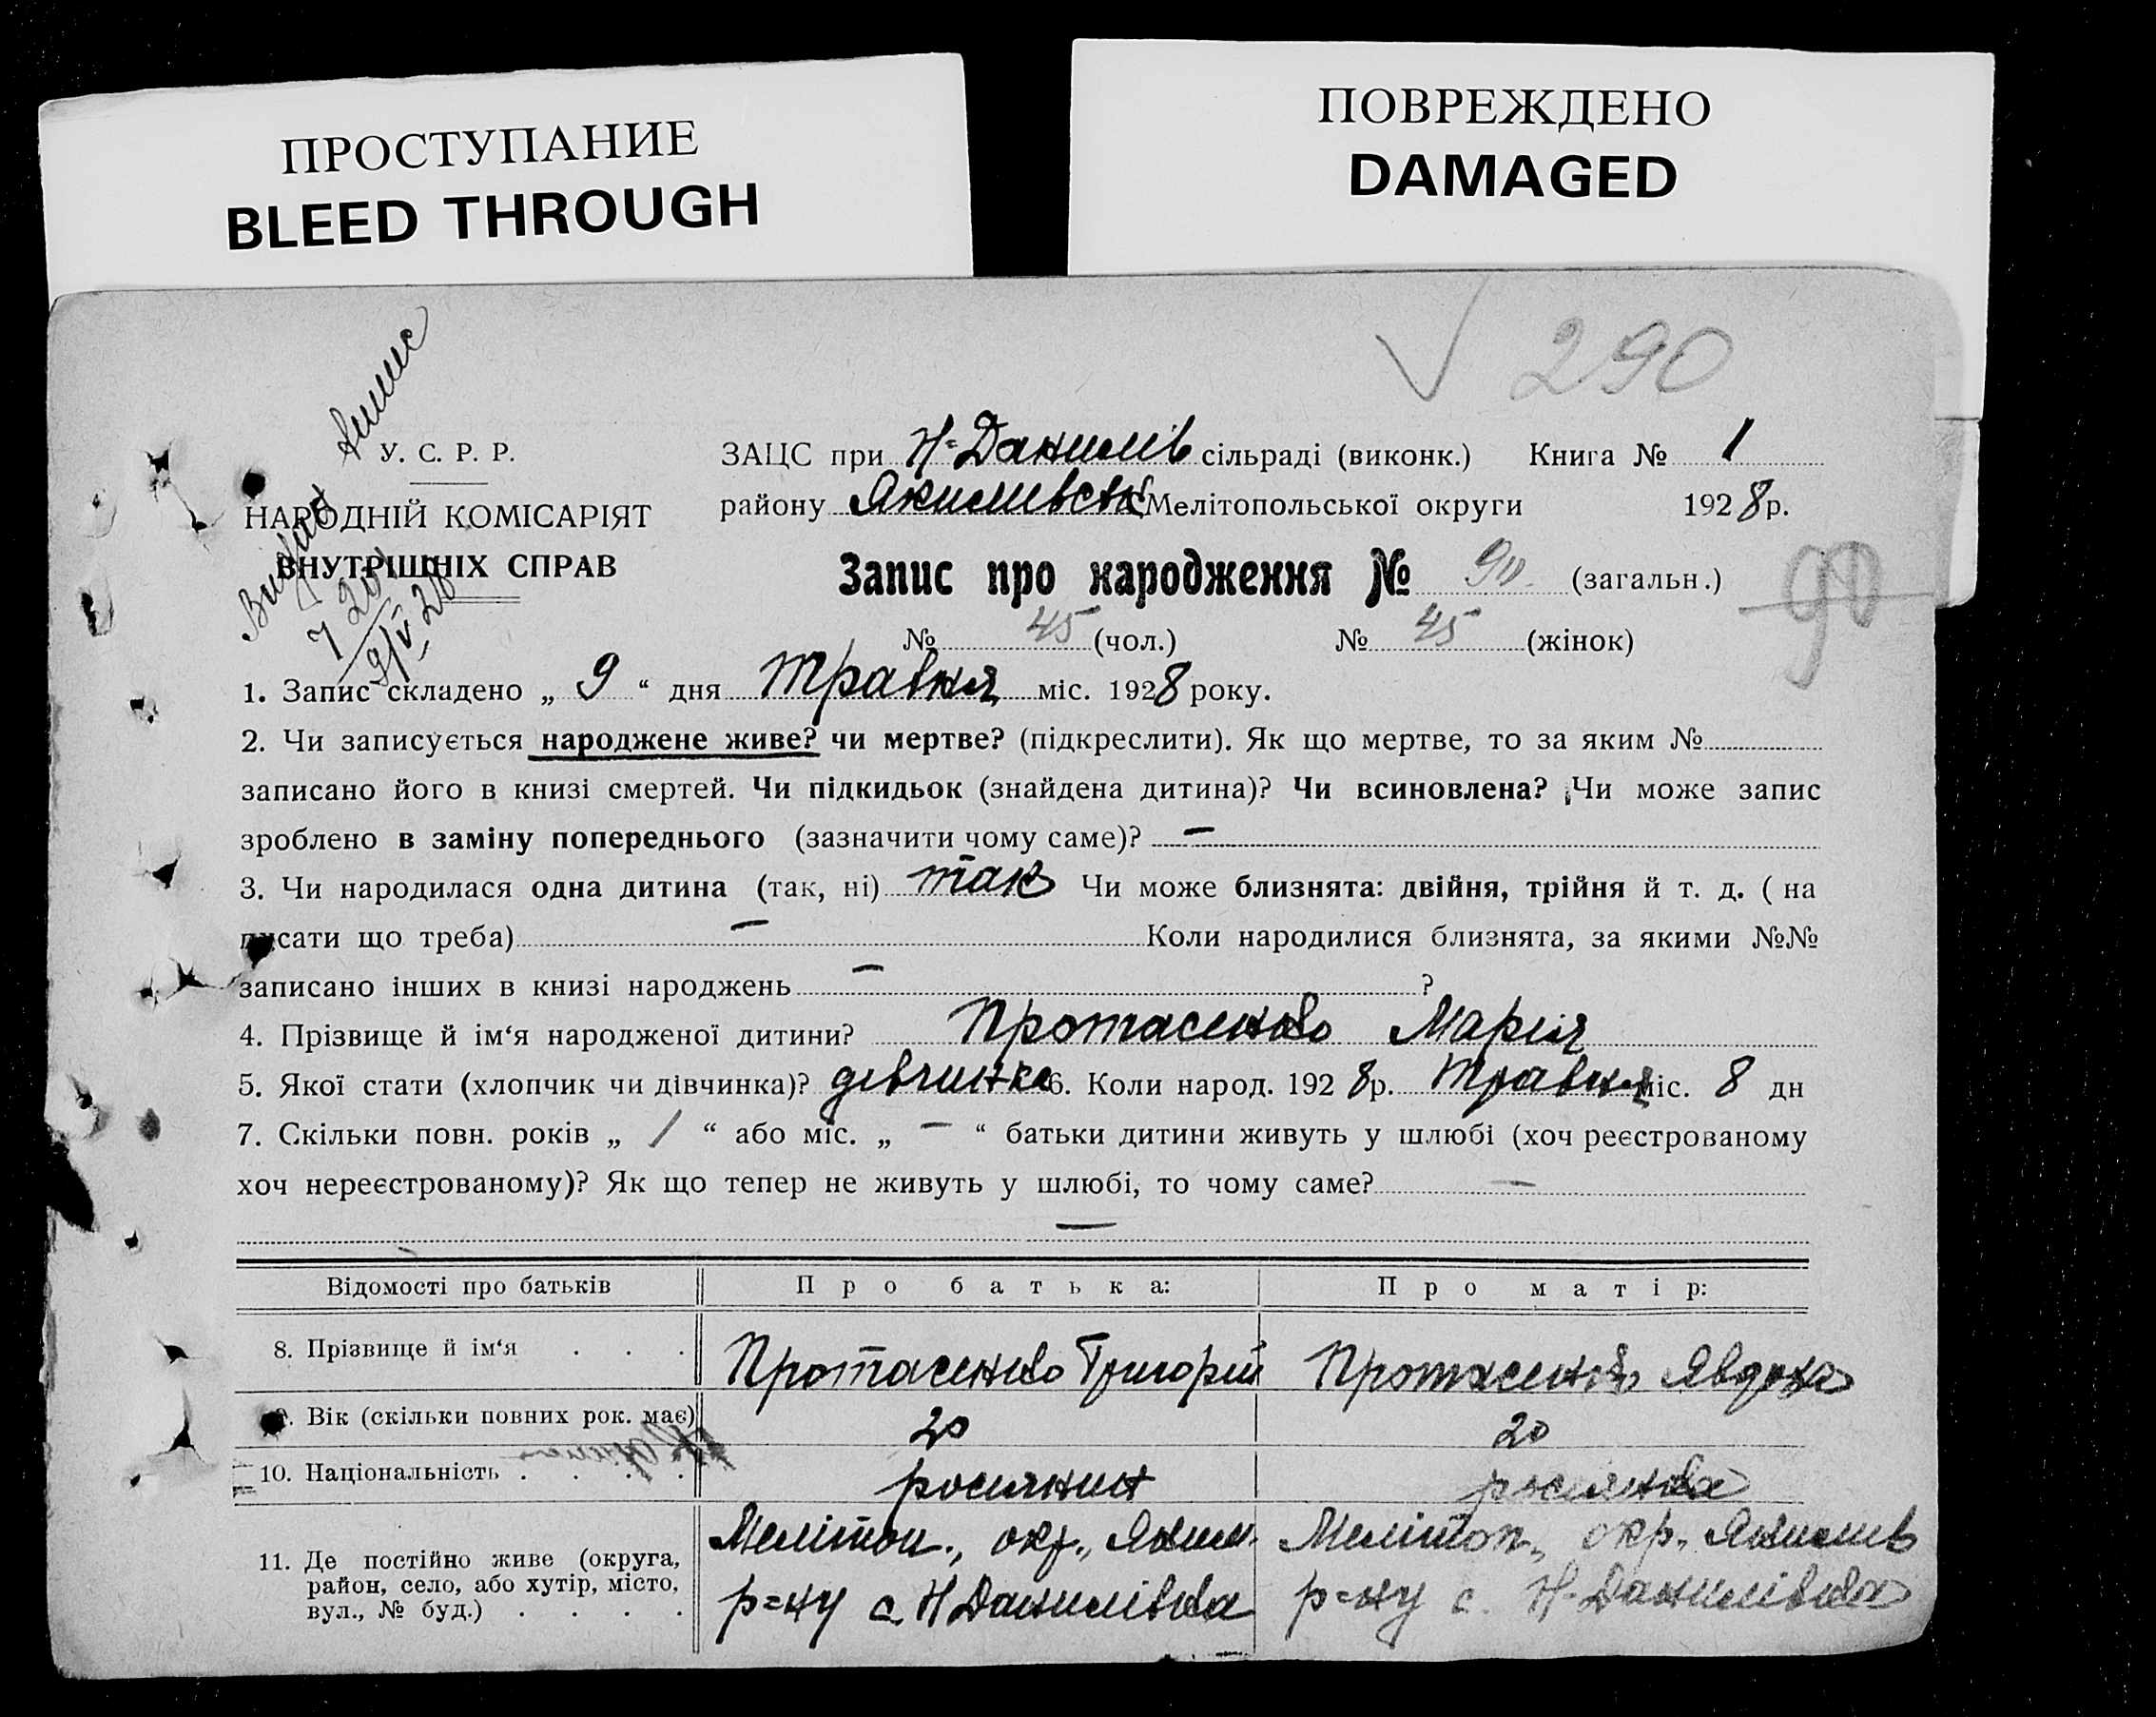 ПРОСТУПАНИЕ
BLEED THROUGH
ПОВРЕЖДЕНО
DAMAGED
√ 290
У. С. Р. Р.
НАРОДНІЙ КОМІСАРІЯТ
ВНУТРІШНІХ СПРАВ
ЗАЦС при Н-Данилів сільраді (виконк.) Книга № 1
району Якимівськ Мелітопольської округи 1928 р.
Запис про народження № 90 (загальн.)
90
№ 45 (чол.) № 45 (жінок)
1. Запис складено „ 9 “ дня Травня міс. 1928 року.
2. Чи записується народжене живе? чи мертве? (підкреслити). Як що мертве, то за яким №
записано його в книзі смертей. Чи підкидьок (знайдена дитина)? Чи всиновлена? Чи може запис
зроблено в заміну попереднього (зазначити чому саме)? —
3. Чи народилася одна дитина (так, ні) так Чи може близнята: двійня, трійня й т. д. ( на
писати що треба) — Коли народилися близнята, за якими №№
записано інших в книзі народжень — ?
4. Прізвище й ім‘я народженої дитини? Протасенко Марія
5. Якої стати (хлопчик чи дівчинка)? дівчинка 6. Коли народ. 1928 р. Травня міс. 8 дн
7. Скільки повн. років „ 1 “ або міс. „ — “ батьки дитини живуть у шлюбі (хоч реєстрованому
хоч нереєстрованому)? Як що тепер не живуть у шлюбі, то чому саме? —
—
Відомості про батьків Про батька: Про матір:
8. Прізвище й ім‘я . . . Протасенко Григорій Протасенко Явдоха
9. Вік (скільки повних рок. має) 20 20
10. Національність . . . . росиянин росиянка
11. Де постійно живе (округа, район, село, або хутір, місто, вул., № буд.) . . . .
Мелітоп., окр., Яким. Мелітоп., окр., Якимів
р=ну с. Н Данилівка р=ну с. Н-Данилівка